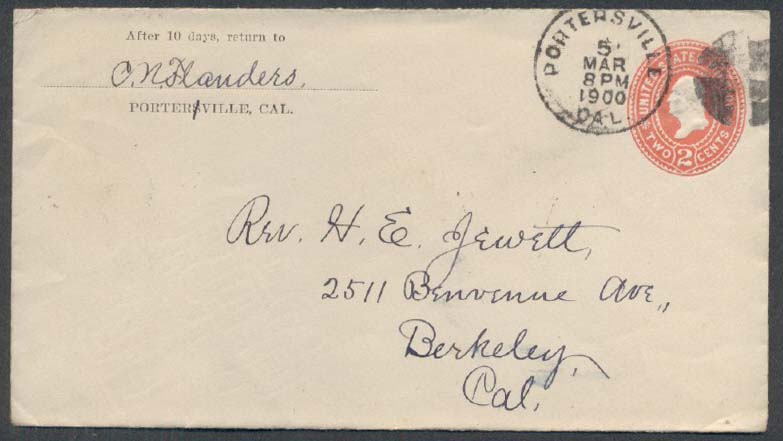 After 10 days, return to
C. N. Flanders.
PORTERSVILLE, CAL.
PORTERSVILLE
5
MAR
8 PM
1900
CAL.
UNITED STATES
TWO 2 CENTS
Rev. H. E. Jewett,
2511 Benvenue Ave.,
Berkeley,
Cal.